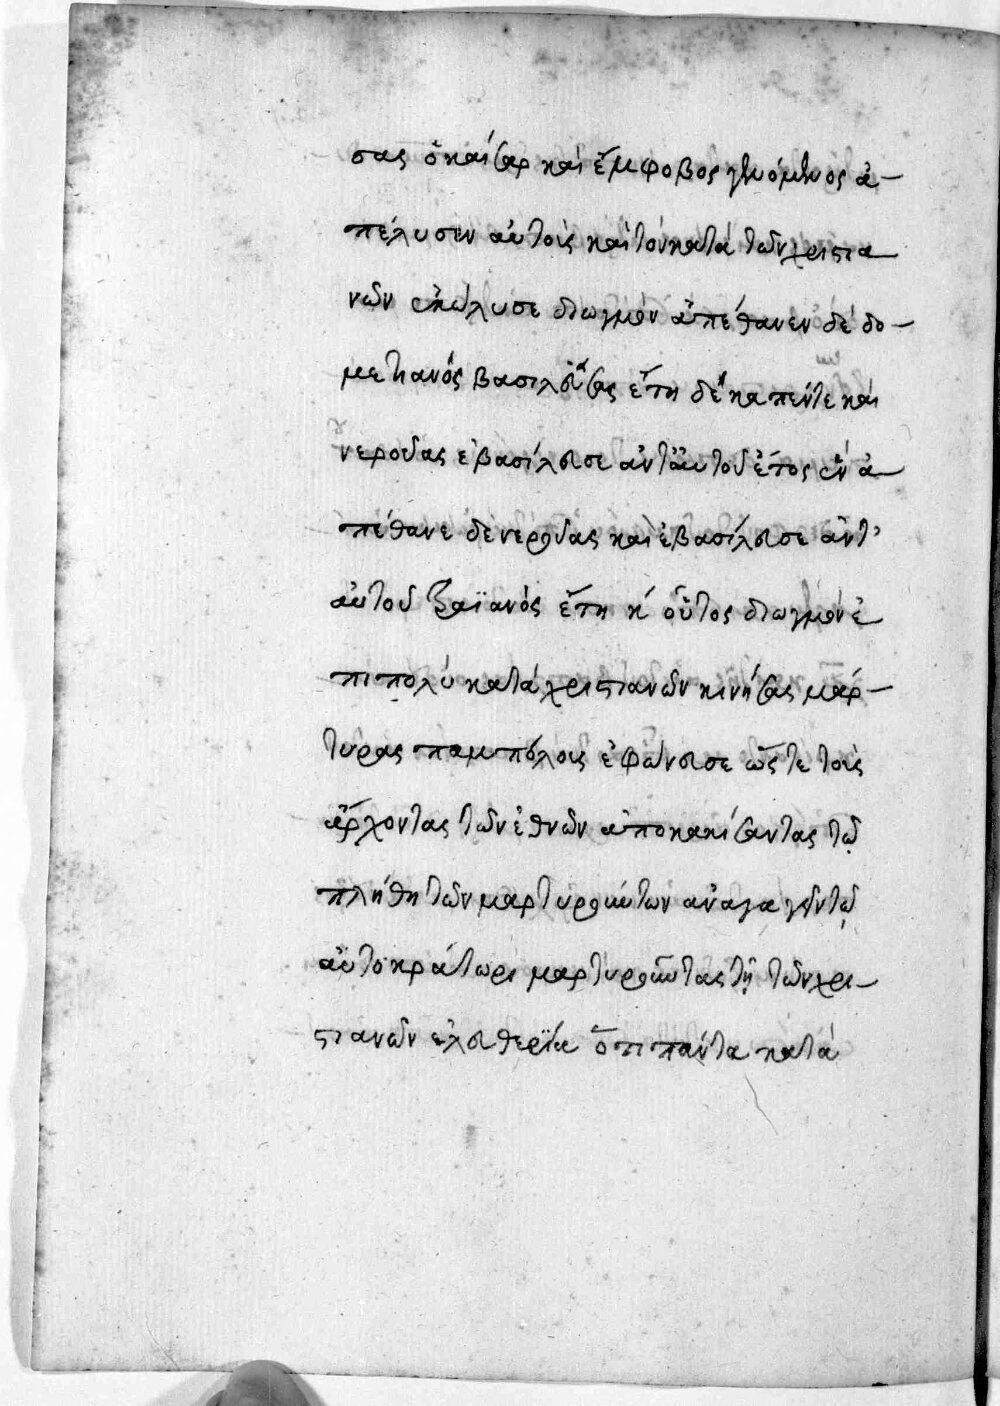 σας ὁ καίσαρ καὶ ἔμφοβος γενόμενος ἀ-
πέλυσεν αὐτοὶς καὶ τὸν κατὰ τῶν χριστια
νῶν ἐκώλυσε διωγμόν ἀπέθανεν δὲ δο-
μετιανὸς βασιλεύσας ἔτη δέκα πέντε καὶ
νερούας ἐβασίλευσε ἀντ αὐτοῦ ἔτος ἓν ἀ
πέθανε δὲ νερούας καὶ ἐβασίλευσε ἀντ'
αὐτοῦ τραϊανὸς ἔτη κ' οὗτος διωγμὸν ἐ
πιπολὺ κατὰ χριστιανῶν κινήσας μάρ-
τυρας παμπόλοις ἐφώνευσε ὥστε τοὶς
ἄρχοντας τῶν ἐθνῶν ἀποκακίσαντας τῷ
πλήθη τῶν μαρτυρούντων ἀναγαγεῖν τῷ
αὐτοκράτωρι μαρτυροῦντας τῇ τῶν χρι-
στιανῶν ελευθερία ὅτι πάντα κατὰ